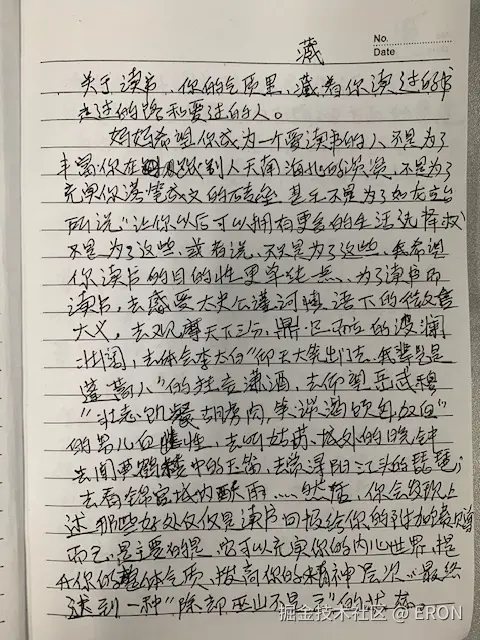 藏
No.
Date
关于读书,你的气质里,藏着你读过的书
走过的路和爱过的人。
妈妈希望你成为一个爱读书的人,不是为了
丰富你在收到别人天南海北的谈资,不是为了
充实你落笔成文的基垒,甚至不是为了如龙应台
所说"让你以后可以拥有更多的生活选择权"
不是为了这些,或者说,不只是为了这些,我希望
你读书的目的性更单纯点,为了读书而
读书,去感受太史公谨河悬语下的微言
大义,去观摩天下三分,鼎足而立的波澜
壮阔,去体会李太白"仰天大笑出门去,我辈岂是
蓬蒿人"的狂妄潇洒,去仰望岳武穆
"壮志饥餐胡虏肉,笑谈渴饮匈奴血"
的男儿血性,去听姑苏城外的晚钟
去闻黄鹤楼中的玉笛,去赏浔阳江头的琵琶;
去看锦官城的夜雨……然后,你会发现上
述那些好处仅仅是读书回报给你的附加的
而已,最主要的是,它可以充实你的内心世界,提
升你的整体气质,拔高你的精神层次,最终
达到一种"除却巫山不是云"的状态。
掘金技术社区 @ ERON